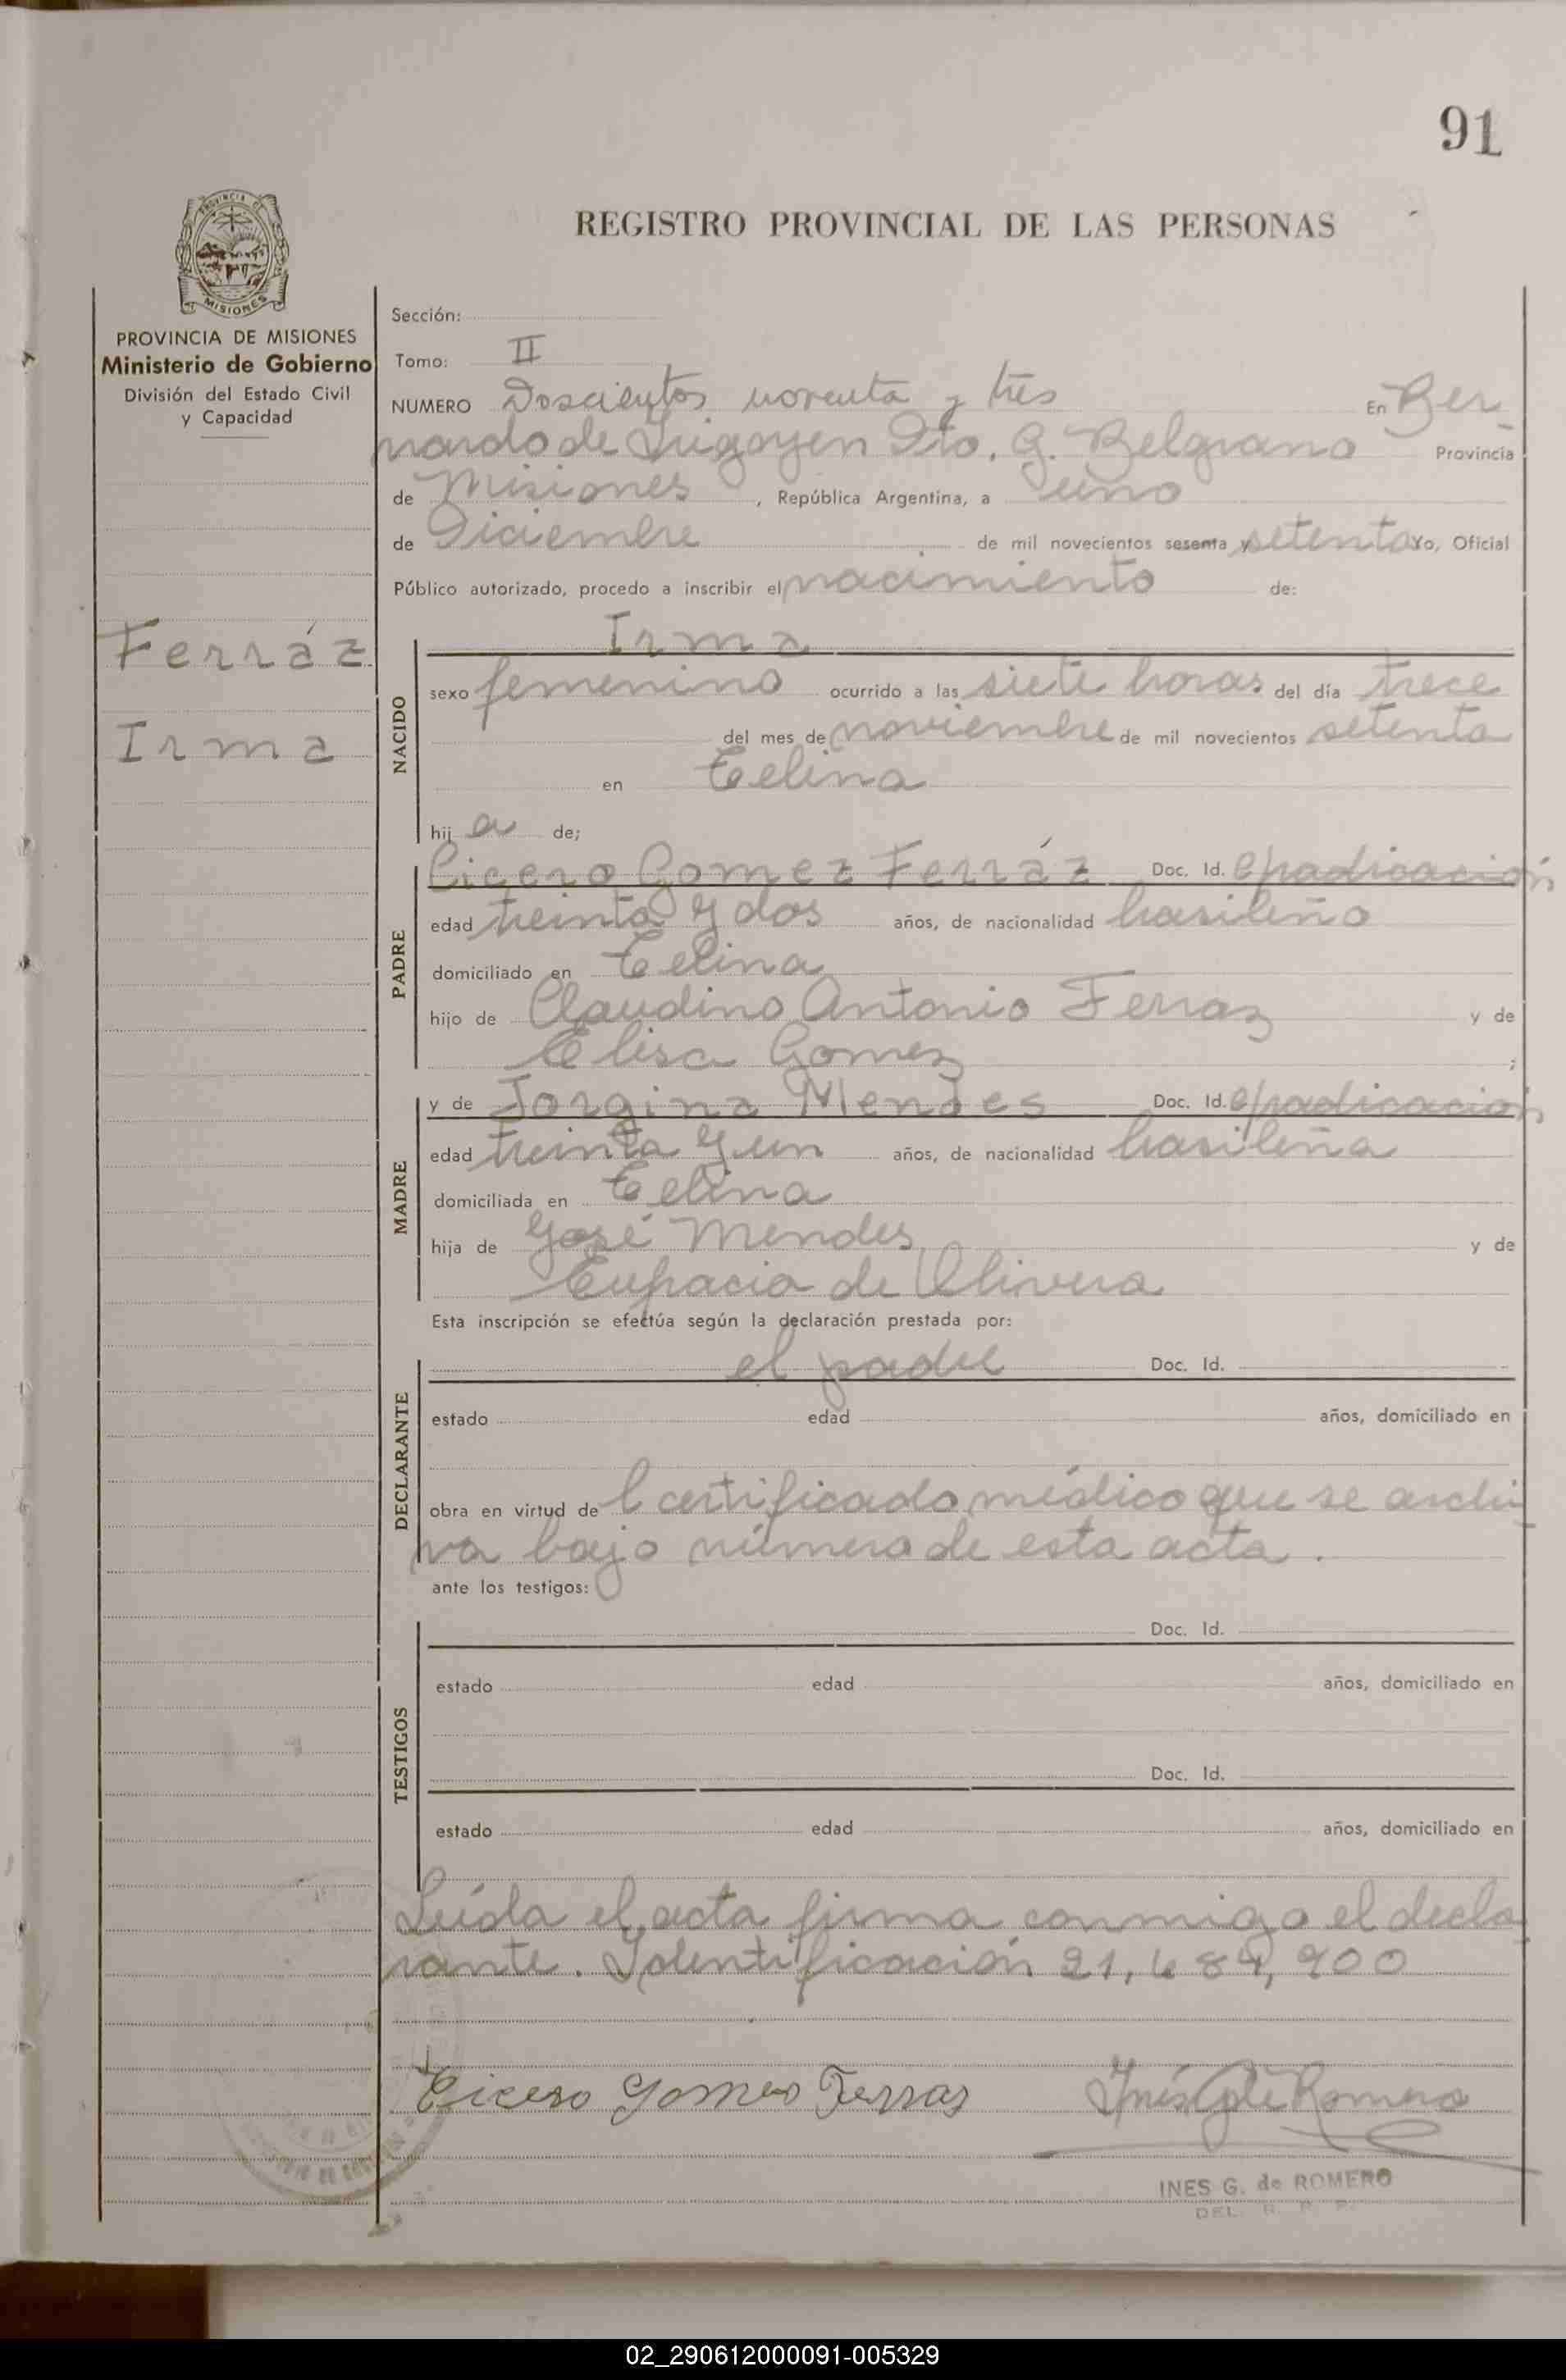 91
REGISTRO PROVINCIAL DE LAS PERSONAS
PROVINCIA DE
MISIONES
PROVINCIA DE MISIONES
Ministerio de Gobierno
División del Estado Civil
y Capacidad
Ferráz
Irma
Sección:
Tomo: II
NUMERO Doscientos noventa y tres En Ber
nardo de Irigoyen Dto. G. Belgrano Provincia
de Misiones, República Argentina, a uno
de Diciembre de mil novecientos sesenta y setenta Yo, Oficial
Público autorizado, procedo a inscribir el nacimiento de:
NACIDO
Irma
sexo femenino ocurrido a las siete horas del día trece
del mes de noviembre de mil novecientos setenta
en Celina
hij a de;
PADRE
Cicero Gomez Ferráz Doc. Id. C/radicación
edad treinta y dos años, de nacionalidad brasileño
domiciliado en Celina
hijo de Claudino Antonio Ferraz y de
Elisa Gomez ;
MADRE
y de Jorgina Mendes Doc. Id. C/radicación
edad treinta y un años, de nacionalidad brasileña
domiciliada en Celina
hija de José Mendes y de
de Olivera
Esta inscripción se efectúa según la declaración prestada por:
DECLARANTE
el padre Doc. Id.
estado edad años, domiciliado en
obra en virtud de l certificado médico que se archi
va bajo número de esta acta.
ante los testigos:
TESTIGOS
Doc. Id.
estado edad años, domiciliado en
Doc. Id.
estado edad años, domiciliado en
Leída el acta firma conmigo el decla
rante. Identificación 21,684,900
Cicero Gomes Ferras Inés G de Romero
INES G. de ROMERO
DEL. R. P. P.
02_290612000091-005329